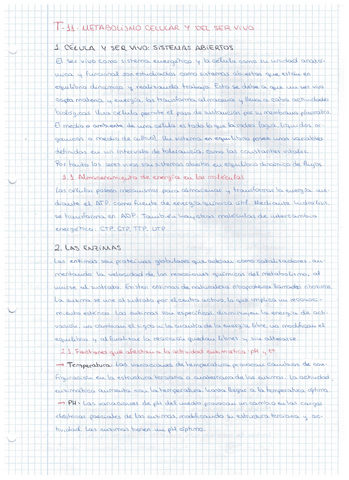 T-11: METABOLISMO CELULAR Y DEL SER VIVO
1. CÉLULA Y SER VIVO: SISTEMAS ABIERTOS
El ser vivo como sistema energético y la célula como su unidad
y funcional son estudiados como sistemas abiertos que están en
equilibrio dinámico y realizando trabajo. Esto se debe a que un ser vivo
capta materia y energía, las transforma, almacena y lleva a cabo actividades
biológicas. Una célula permite el paso de sustancias por su membrana plasmática.
El medio o ambiente de una célula es todo lo que la rodea (agua, líquidos
o medio de cultivo). Un sistema en equilibrio posee unas variables
definidas en un intervalo de tolerancia, como las constantes vitales.
Por tanto los seres vivos son sistemas abiertos en equilibrio dinámico de flujos.
1.1. Almacenamiento de energía en las moléculas
Las células poseen mecanismos para almacenar y transformar la energía, me-
diante el ATP, como fuente de energía química útil. Mediante hidrólisis,
se transforma en ADP. También hay otras moléculas de intercambio
energético: CTP, GTP, TTP, UTP.
2. LAS ENZIMAS
Las enzimas son proteínas globulares que actúan como catalizadores, au-
mentando la velocidad de las reacciones químicas del metabolismo, al
unirse al sustrato. Existen enzimas de naturaleza
La enzima se une al sustrato por el centro activo, lo que implica un reconoci-
miento estérico. Las enzimas son específicas, disminuyen la energía de acti-
vación, no cambian el signo ni la cuantía de la energía libre, no modifican el
equilibrio y al finalizar la reacción quedan libres y sin alterarse.
2.1. Factores que afectan a la actividad enzimática: pH y tª
→ Temperatura: Las variaciones de temperatura provocan cambios de con-
figuración en la estructura terciaria o cuaternaria de las enzimas. La actividad
enzimática aumenta con la temperatura hasta llegar a la temperatura óptima.
→ PH: Las variaciones de pH del medio provocan un cambio en las cargas
eléctricas de las enzimas, modificando su estructura terciaria y ac-
tividad. Las enzimas tienen un pH óptimo.